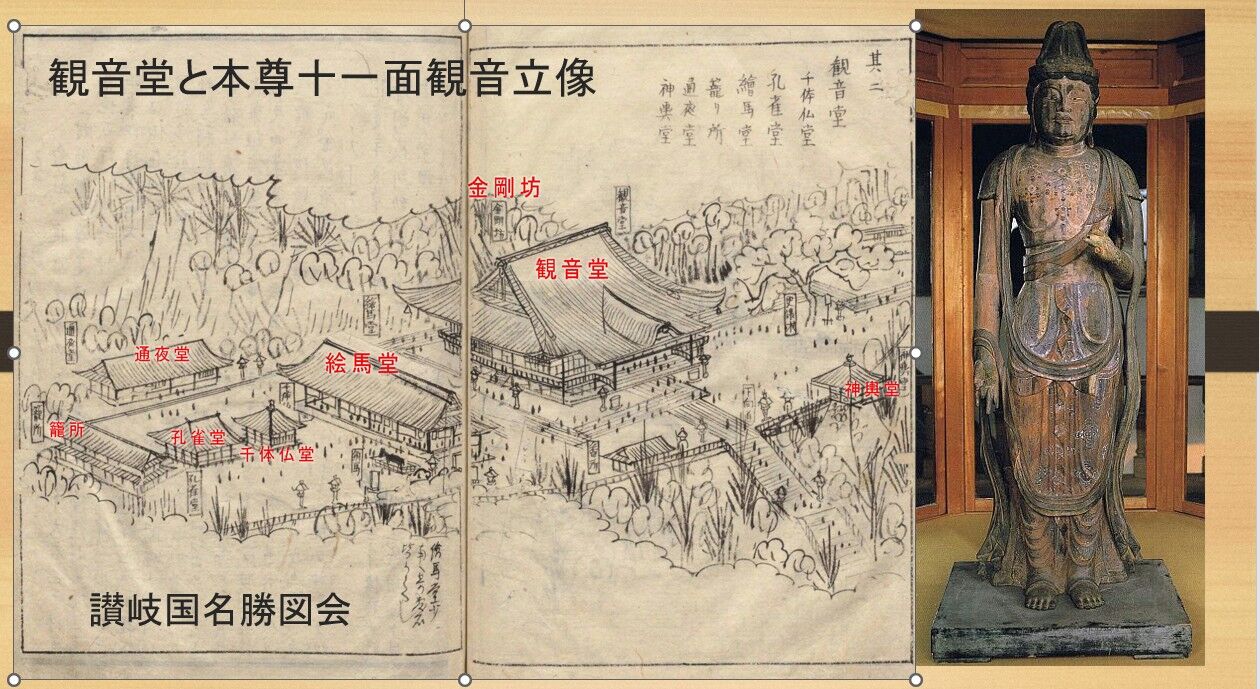 観音堂と本尊十一面観音立像
其二
観音堂
千体仏堂
孔雀堂
繪馬堂
籠り所
通夜堂
神輿堂
金剛坊
金剛坊
観音堂
観音堂
通夜堂
絵馬堂
神輿堂
籠所
孔雀堂
千体仏堂
通夜堂
孔雀堂
讃岐国名勝図会